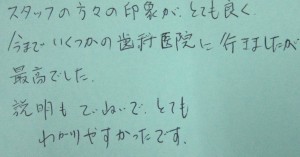 スタッフの方々の印象が、とても良く
今まで いくつかの歯科医院に 行きましたが
最高でした。
説明も ていねいで、とても
わかりやすかったです。